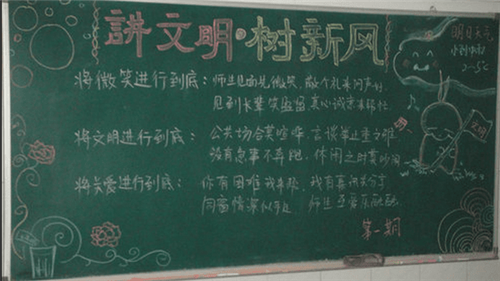 讲文明·树新风
明日天气
小到中雨
2-5℃
将微笑进行到底：师生见面先微笑，敬个礼来问声好
见到长辈笑盈盈，真心诚意来帮忙
将文明进行到底：公共场合莫喧哗，言谈举止要文雅
没有急事不奔跑，休闲之时莫吵闹
将关爱进行到底：你有困难我来帮，我有喜讯共分享
同窗情深似手足，师生互爱乐融融
第一期
文明